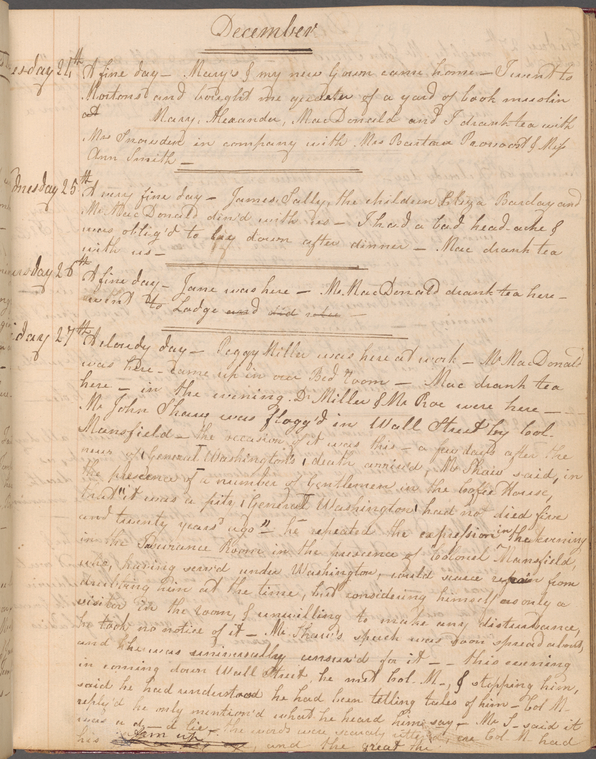 December
esday 24th A fine day - Mary's & my new Gown came home - I went to
Mortons & and bought me of a yard of book muslin
Mary, Alexander, MacDonald and I drank tea with
Mrs Snowden in company with Mrs Bartow Provoost & Miss
Ann Smith -
nesday 25th A very fine day - James, Sally, the children Eliza Barclay and
Mr MacDonald din'd with us - I had a bad head-ache &
was oblig'd to lay down after dinner - Mac drank tea
with us -
day 26th A fine day - Jane was here - Mr MacDonald drank tea here -
went to Lodge and did
day 27th A cloudy day - Peggy Miller was here at work - Mr MacDonald
was here - came up in our Bed Room - Mac drank tea
here - in the evening Dr Miller & Mr Roe were here -
Mr John Shaw was flogg'd in Wall Street by Col.
Mansfield - the occasion of it was this - a few days after the
news of General Washington's death arrived, Mr Shaw said, in
the presence of a number of Gentlemen in the Coffee House,
that "it was a pity General Washington had not died five
and twenty years ago" - he repeated the expression in the evening
in the Insurance Room in the presence of Colonel Mansfield,
who, having serv'd under Washington, could scarce refrain from
drubbing him at the time, but considering himself as only a
visitor in the room, & unwilling to make any disturbance,
he took no notice of it - Mr Shaw's speech was soon spread about,
and he was universally censur'd for it - - this evening
in coming down Wall Street, he met Col M-, & stopping him,
said he had understood he had been telling tales of him - Col M-
reply'd he only mention'd what he heard him say - Mr S- said it
was a d- lie - the words were scarcely utter'd, ere Col M had
his and the great